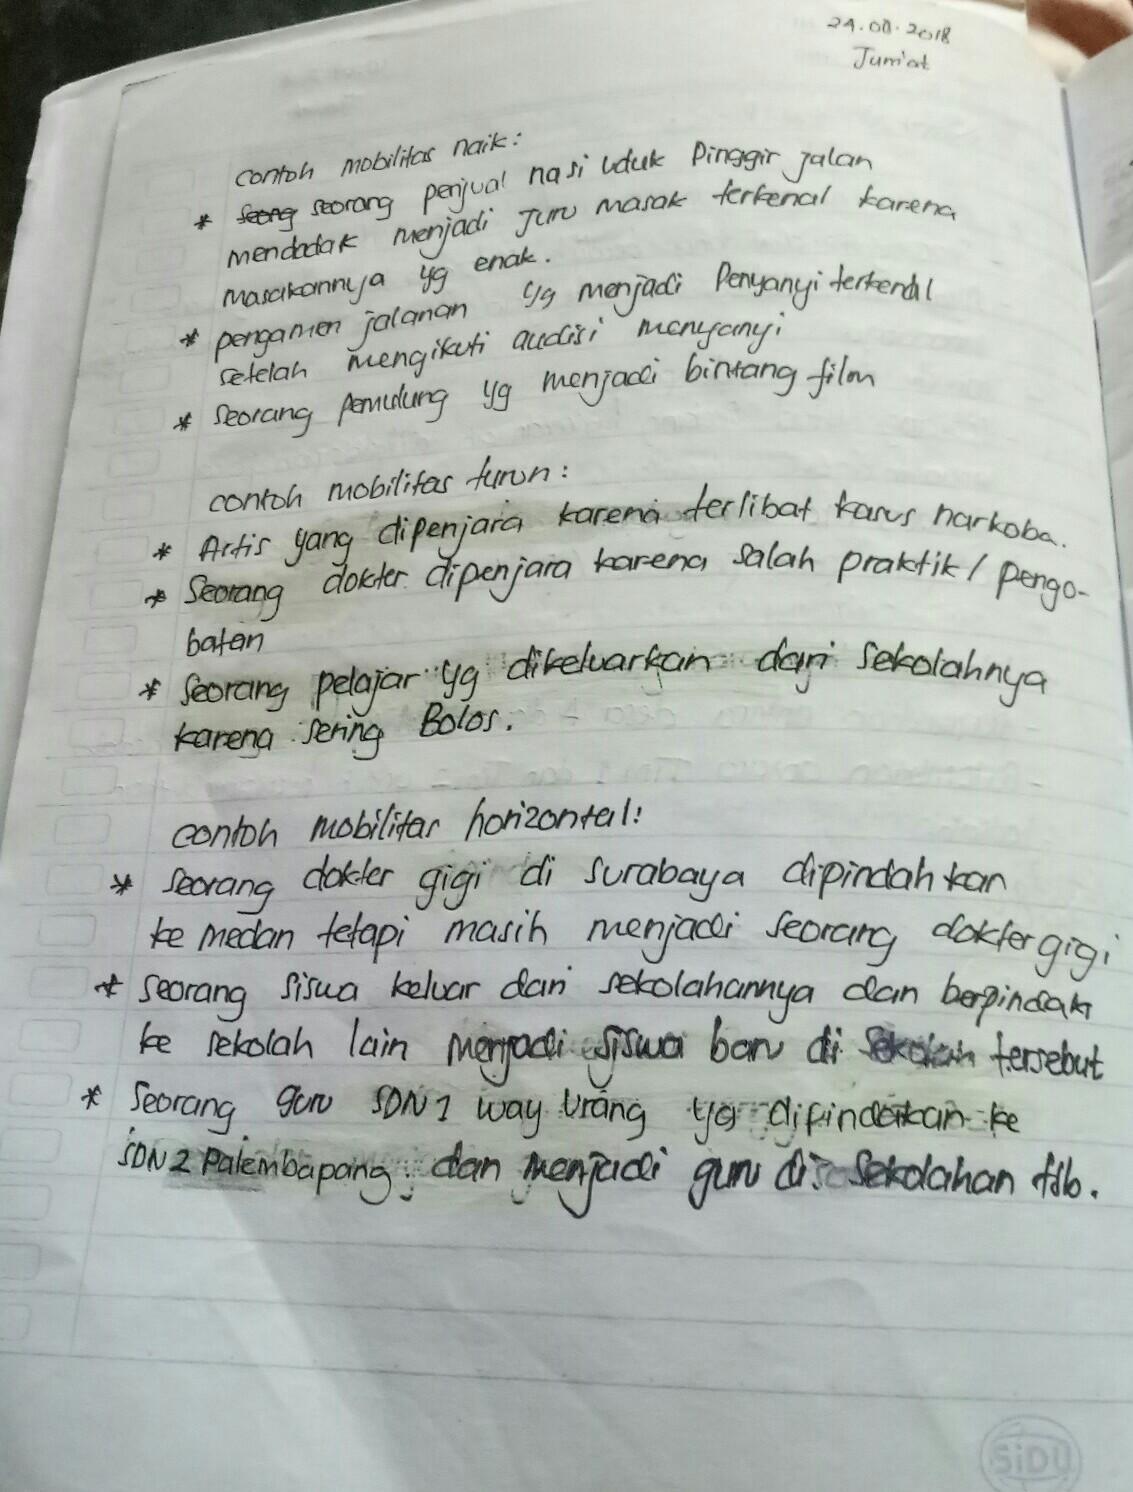 24.08.2018
Jum'at
contoh mobilitas naik:
* seong seorang penjual nasi uduk Pinggir jalan
mendadak menjadi juru masak terkenal karena
masakannya yg enak.
* pengamen jalanan yg menjadi Penyanyi terkenal
setelah mengikuti audisi menyanyi
* seorang pemulung yg menjadi bintang film
contoh mobilitas turun:
* Artis yang dipenjara karena terlibat kasus narkoba.
* Seorang dokter dipenjara karena salah praktik / pengo-
batan
* Seorang pelajar yg dikeluarkan dari sekolahnya
karena sering Bolos.
contoh mobilitas horizontal:
* seorang dokter gigi di surabaya dipindahkan
ke medan tetapi masih menjadi seorang dokter gigi
* seorang siswa keluar dari sekolahannya dan berpindah
ke sekolah lain menjadi siswa baru di sekolah tersebut
* Seorang guru SDN 1 way Urang yg dipindahkan ke
SDN 2 Palembapang dan menjadi guru di sekolahan tsb.
SiDU